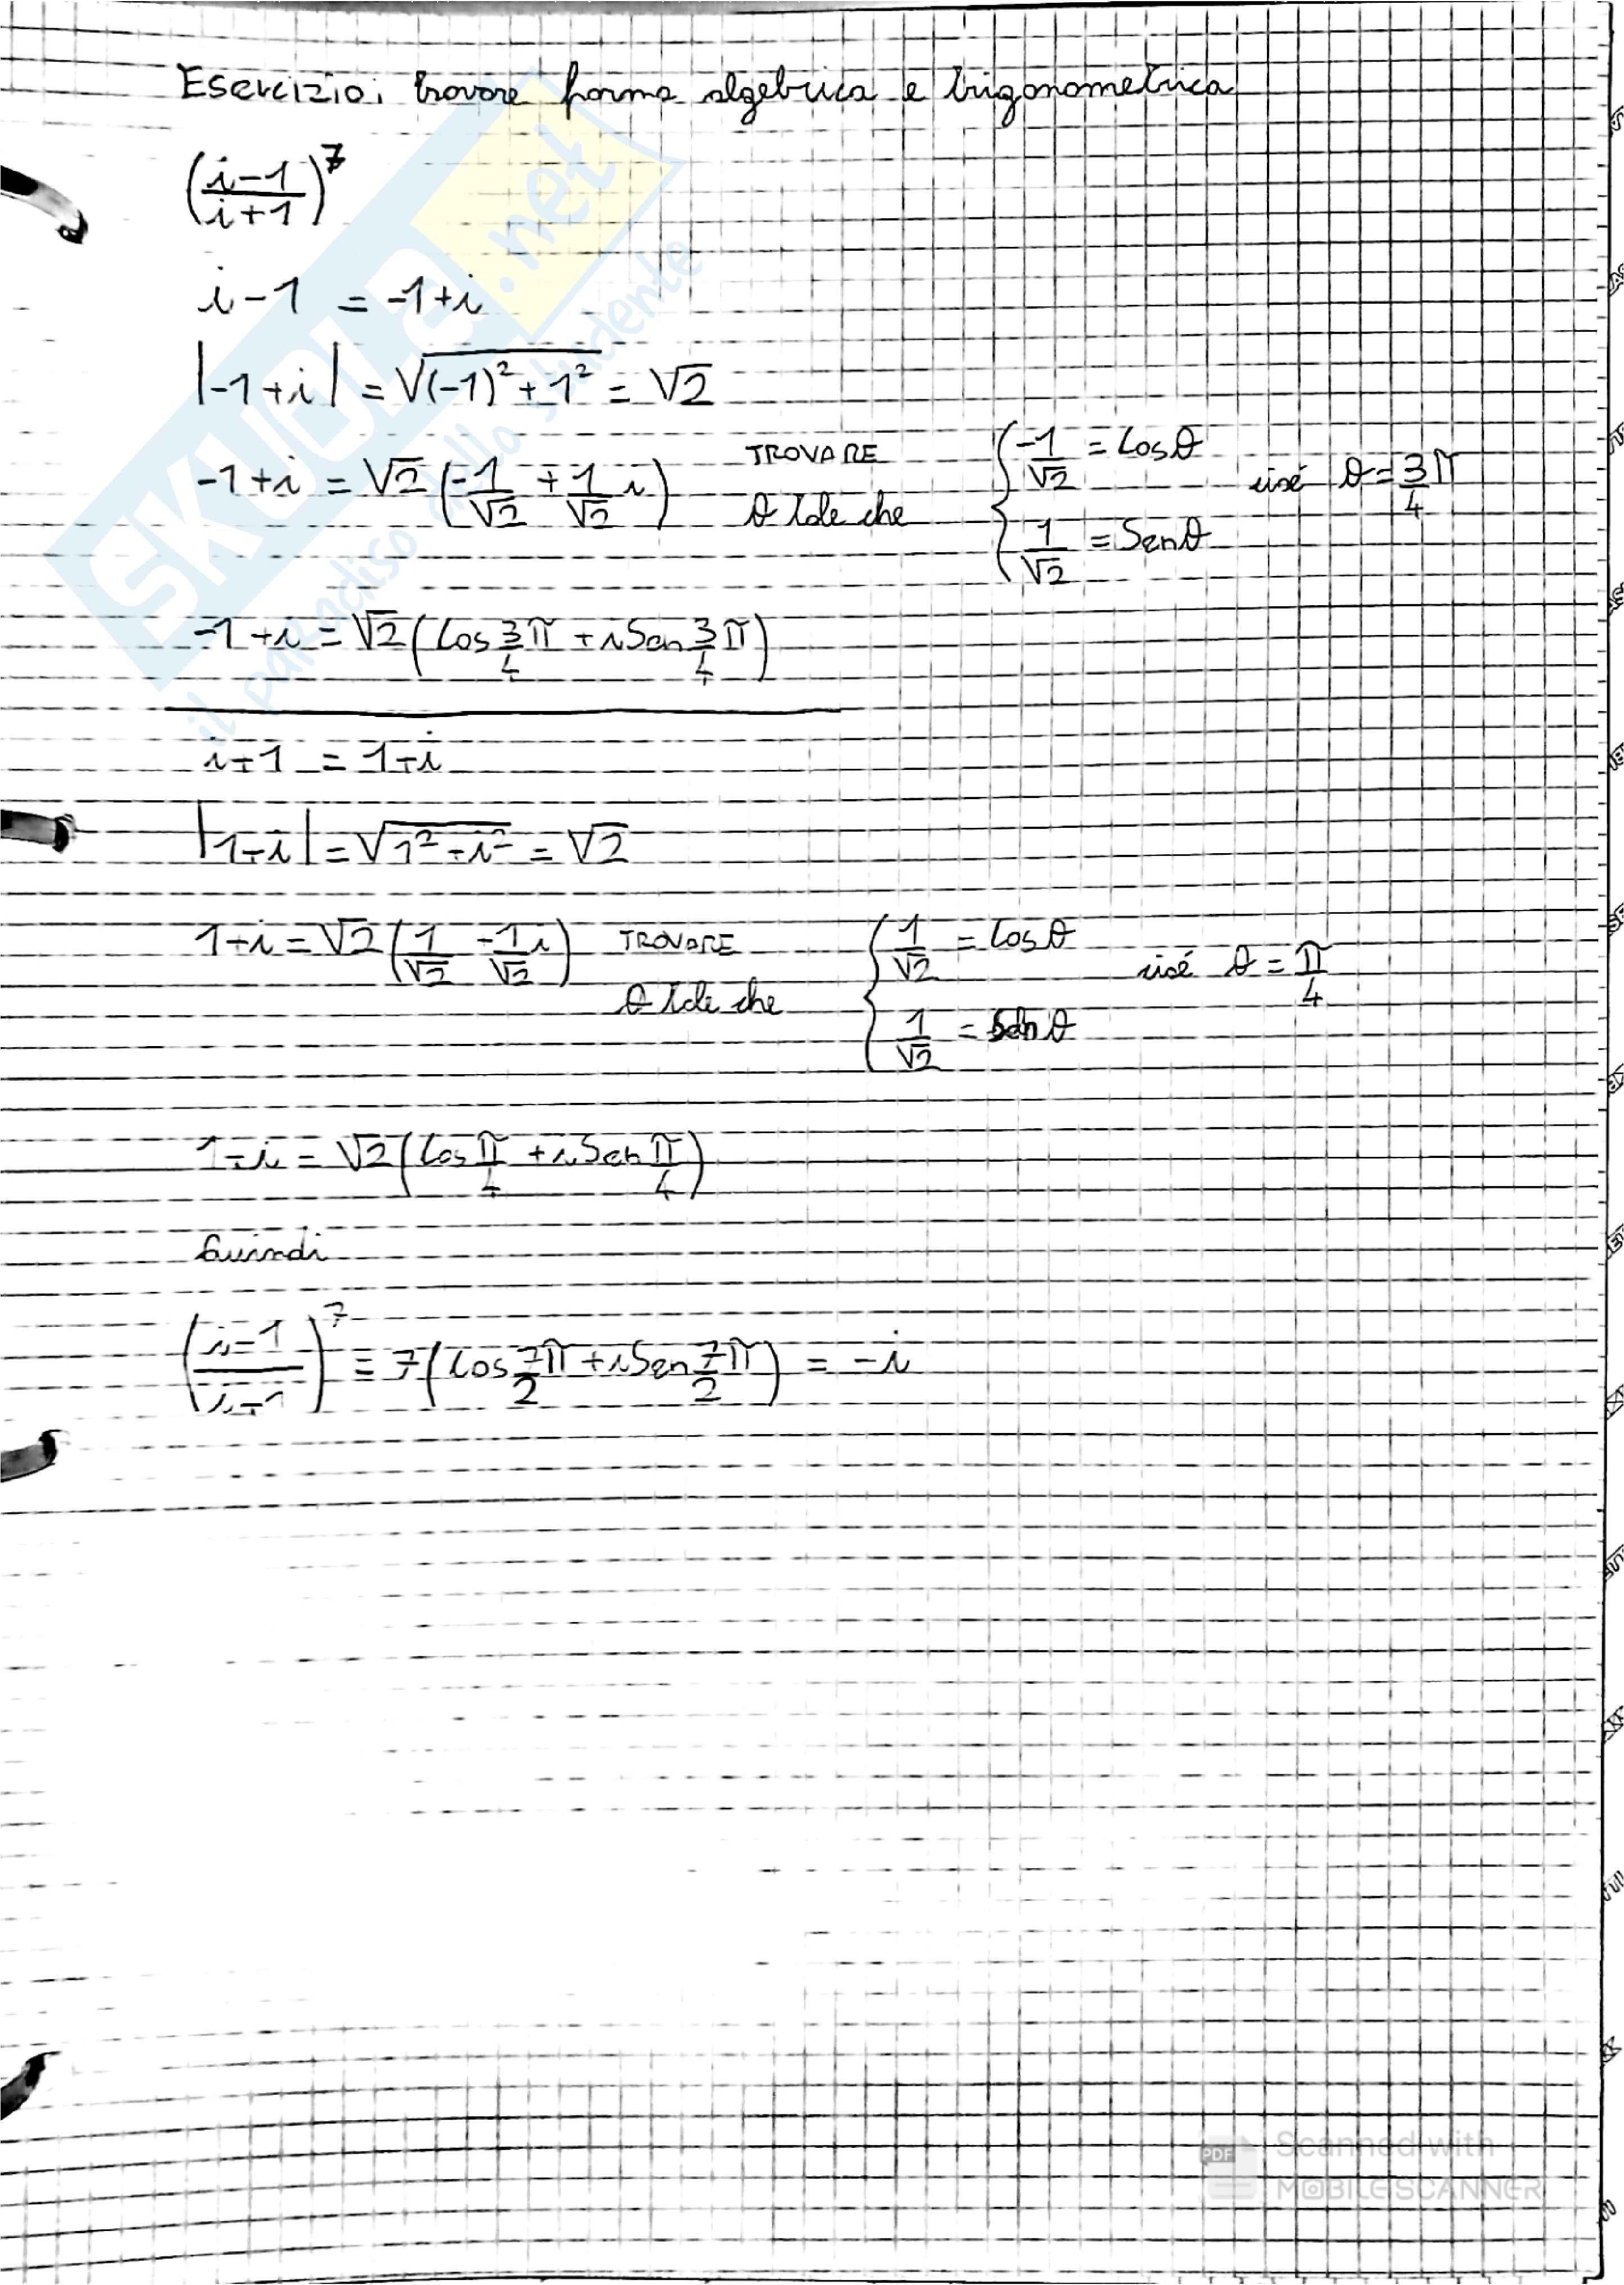 Esercizio: trovare forma algebrica e trigonometrica
(i-1/i+1)^7
i-1 = -1+i
|-1+i| = √(-1)²+1² = √2
-1+i = √2(-1/√2 + 1/√2 i) TROVARE θ tale che {-1/√2 = cosθ, 1/√2 = Senθ cioé θ = 3/4 π
-1+i = √2(cos 3/4 π + i Sen 3/4 π)
i+1 = 1+i
|1+i| = √1²+i² = √2
1+i = √2(1/√2 + 1/√2 i) TROVARE θ tale che {1/√2 = cosθ, 1/√2 = senθ cioé θ = π/4
1+i = √2(cos π/4 + i Sen π/4)
Quindi
(i-1/i+1)^7 = 7(cos 7/2 π + i Sen 7/2 π) = -i
SKUOLA.net
il paradiso dello studente
PDF Scanned with
MOBILE SCANNER